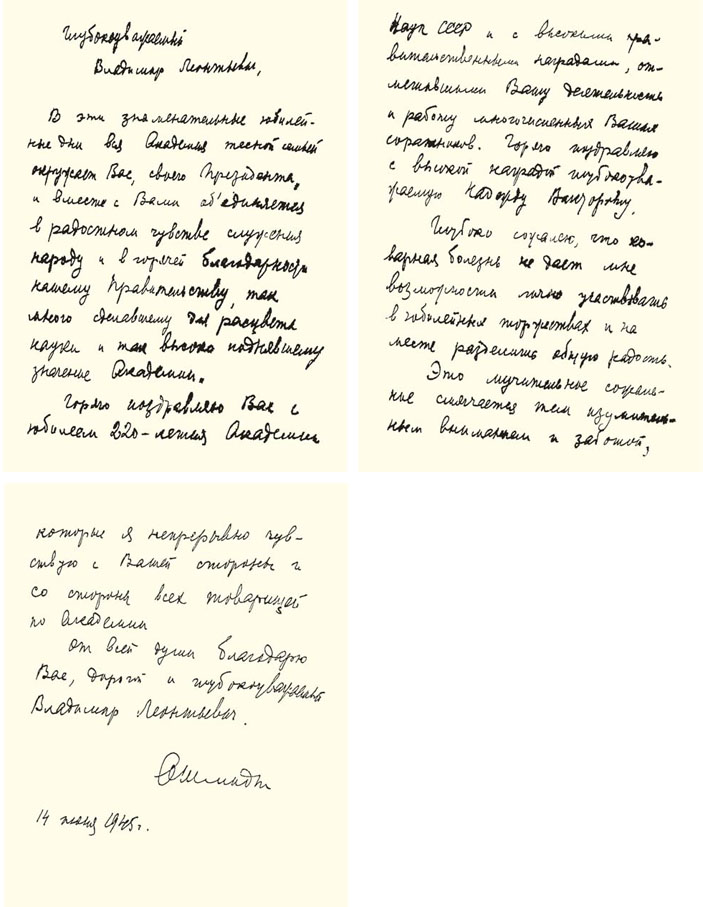 Глубокоуважаемый
Владимир Леонтьевич,
В эти знаменательные юбилей-
ные дни вся Академия тесной семьей
окружает Вас, своего Президента,
и вместе с Вами об'единяется
в радостном чувстве служения
народу и в горячей благодарности
нашему Правительству, так
много сделавшему для расцвета
науки и так высоко поднявшему
значение Академии.
Горячо поздравляю Вас с
юбилеем 220-летия Академии
Наук СССР и с высокими пра-
вительственными наградами, от-
метившими Вашу деятельность
и работу многочисленных Ваших
соратников. Горячо поздравляю
с высокой наградой глубокоува-
жаемую Надежду Викторовну.
Глубоко сожалею, что ко-
варная болезнь не дает мне
возможности лично участвовать
в юбилейных торжествах и на
месте разделить общую радость.
Это мучительное сожале-
ние смягчается тем изумитель-
ным вниманием и заботой,
которые я непрерывно чув-
ствую с Вашей стороны и
со стороны всех товарищей
по Академии
От всей души благодарю
Вас, дорогой и глубокоуважаемый
Владимир Леонтьевич.
ОШмидт
14 июня 1945г.